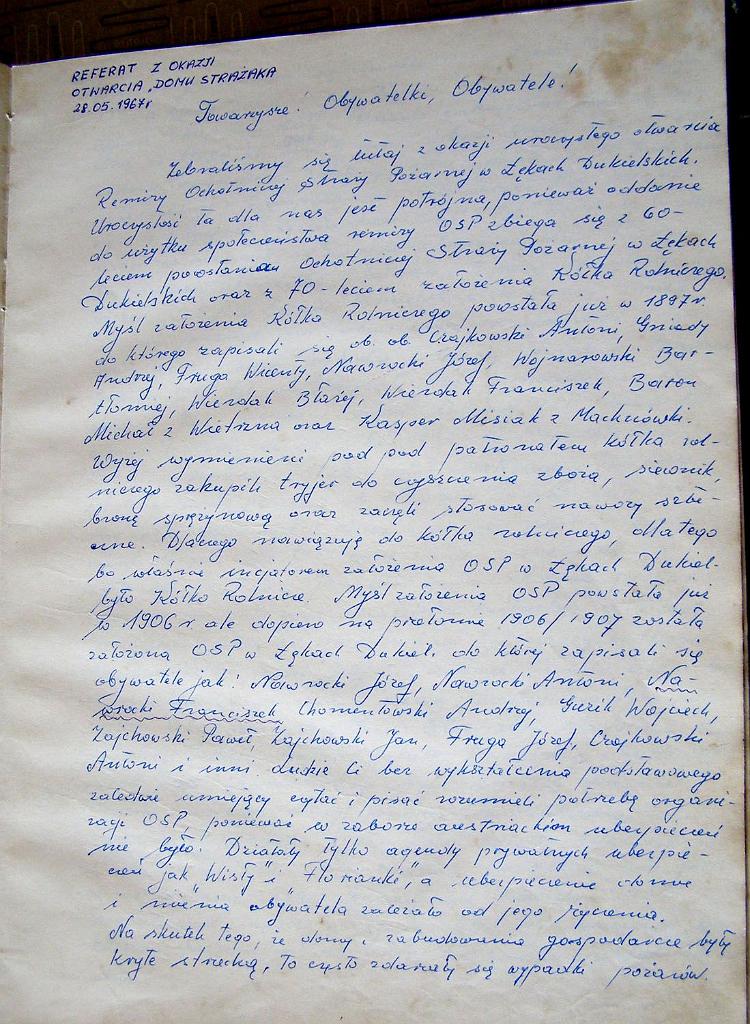 REFERAT Z OKAZJI
OTWARCIA "DOMU STRAŻAKA
28.05.1967r
Towarzysze! Obywatelki, Obywatele!
Zebraliśmy się tutaj z okazji uroczystego otwarcia
Remizy Ochotniczej Straży Pożarnej w Łękach Dukielskich.
Uroczystość ta dla nas jest potrójna, ponieważ oddanie
do użytku społeczeństwa remizy OSP zbiega się z 60-
leciem powstania Ochotniczej Straży Pożarnej w Łękach
Dukielskich oraz z 70-leciem założenia Kółka Rolniczego.
Myśl założenia Kółka Rolniczego powstała już w 1897r.
do którego zapisali się ob. ob. Czajkowski Antoni, Gniady
Andrzej, Fruga Wicenty, Nawrocki Józef, Wojnarowski Bar-
tłomiej, Wierdak Błażej, Wierdak Franciszek, Baron
Michał z Wietrzna oraz Kasper Misiak z Machnówki.
Wyżej wymienieni pod pod patronatem kółka rol-
niczego zakupili tryjer do czyszczenia zboża, siewnik,
bronę sprężynową oraz zaczęli stosować nawozy sztu-
czne. Dlaczego nawiązuję do kółka rolniczego, dlatego
bo właśnie inicjatorem założenia OSP w Łękach Dukiel-
było Kółko Rolnicze. Myśl założenia OSP powstała już
w 1906 r. ale dopiero na przełomie 1906/1907 została
założona OSP w Łękach Dukiel. do której zapisali się
obywatele jak: Nawrocki Józef, Nawrocki Antoni, Na-
wrocki Franciszek Chomentowski Andrzej, Guzik Wojciech,
Zajchowski Paweł, Zajchowski Jan, Fruga Józef, Czajkowski
Antoni i inni. Ludzie Ci bez wykształcenia podstawowego
zaledwie umiejący czytać i pisać rozumieli potrzebę organi-
zacji OSP, ponieważ w zaborze austriackim ubezpieczeń
nie było. Działały tylko agendy prywatnych ubezpie-
czeń jak "Wisły" i "Florianki", a ubezpieczenie domu
i mienia obywatela zależało od jego życzenia.
Na skutek tego, że domy i zabudowania gospodarcze były
kryte strzechą, to często zdarzały się wypadki pożarów.